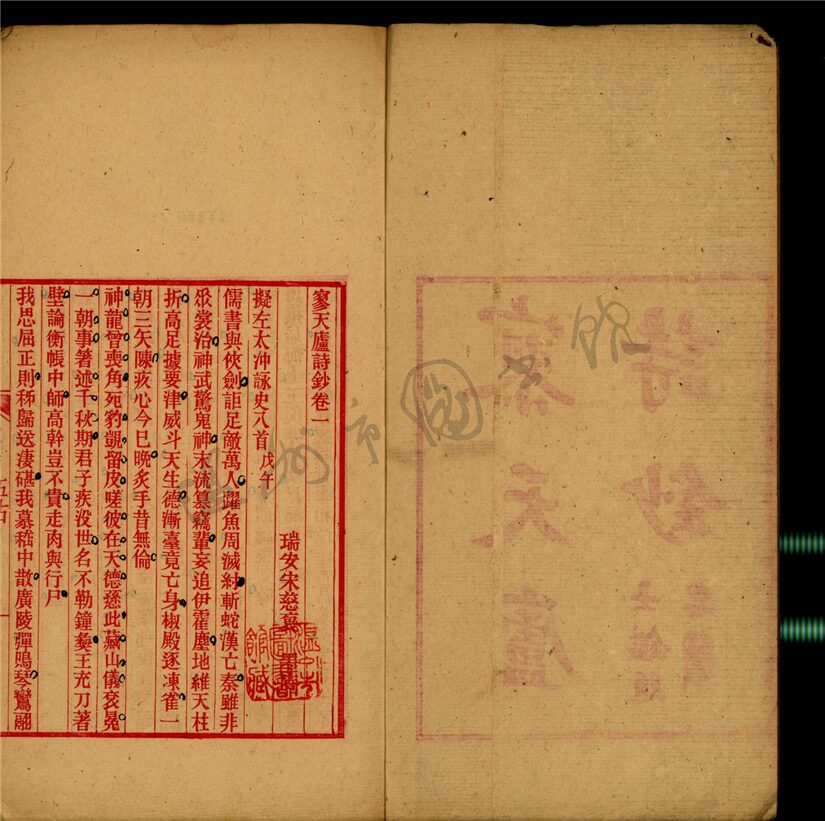 寥天廬詩鈔卷一
瑞安宋慈褱
擬左太沖詠史八首 戊午
儒書與俠劍詎足敵萬人躍魚周滅紂斬蛇漢亡秦雖非
衮裳治神武驚鬼神末流篡竊輩妄追伊霍塵地維天柱
折高足據要津威斗天生德漸臺竟亡身椒殿逐凍雀一
朝三矢陳疢心今已晚炙手昔無倫
神龍曾喪角死豹覬留皮嗟彼在天德慈此藏山儀袞冕
一朝事箸述千秋期君子疾沒世名不勒鐘彝王充刀著
壁論衡帳中師高幹豈不貴走肉與行尸
我思屈正則秭歸送淒碪我慕嵇中散廣陵彈鳴琴鸞翮
寥天廬
詩鈔
溫州市圖書館